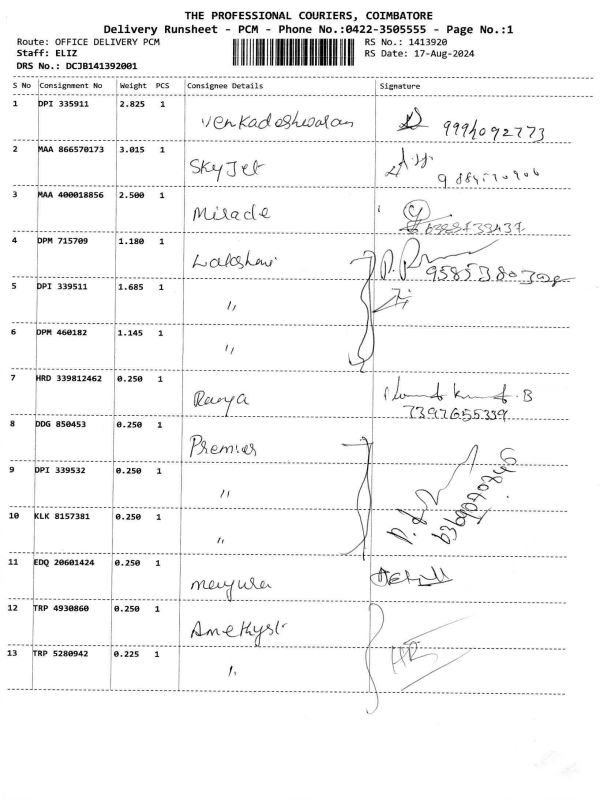 THE PROFESSIONAL COURIERS, COIMBATORE
Delivery Runsheet - PCM - Phone No.:0422-3505555 - Page No.:1
Route: OFFICE DELIVERY PCM RS No.: 1413920
Staff: ELIZ RS Date: 17-Aug-2024
DRS No.: DCJB141392001
S No Consignment No Weight PCS Consignee Details Signature
1 DPI 335911 2.825 1
Venkadeshwaran
2 MAA 866570173 3.015 1
SkyJet
3 MAA 400018856 2.500 1
4 DPM 715709 1.180 1
5 DPI 339511 1.685 1
〃
6 DPM 460182 1.145 1
〃
7 HRD 339812462 0.250 1
Ramya
7397655339
8 DDG 850453 0.250 1
Premier
9 DPI 339532 0.250 1
〃
10 KLK 8157381 0.250 1
〃
11 EDQ 20601424 0.250 1
mayura
12 TRP 4930860 0.250 1
Amethyst
13 TRP 5280942 0.225 1
〃